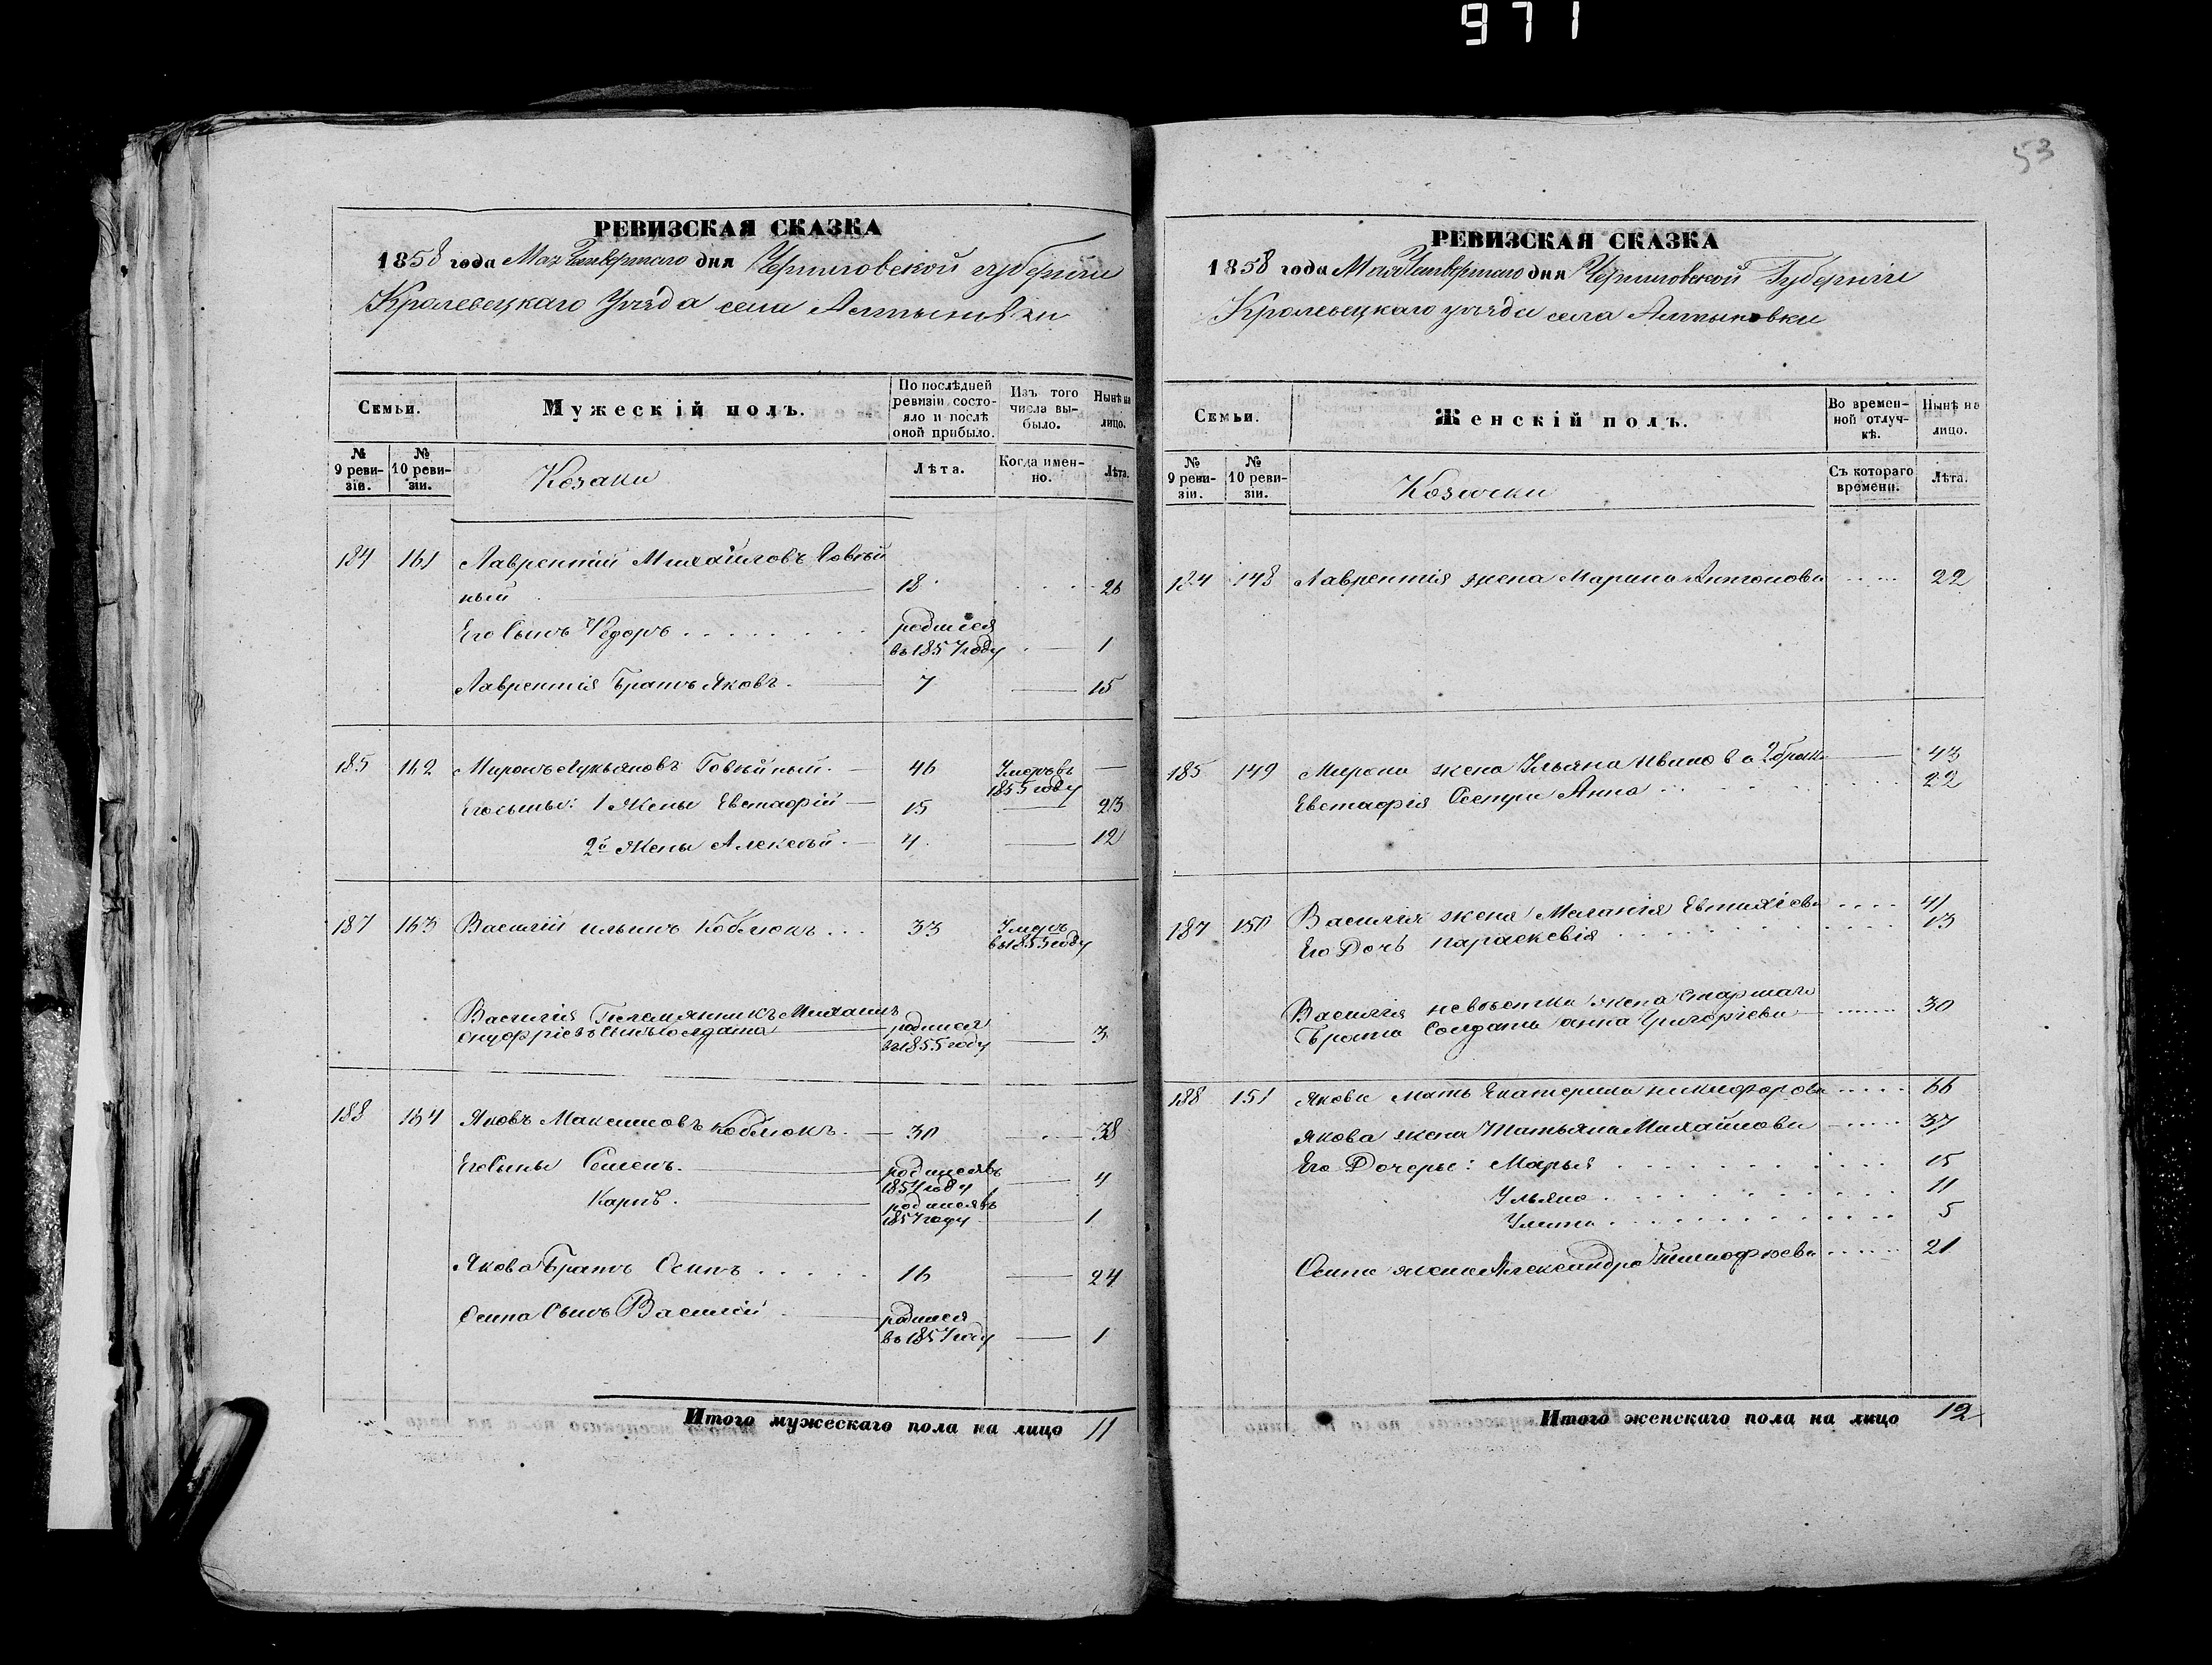 971
РЕВИЗСКАЯ СКАЗКА
1858 года Мая Четвертаго дня Черниговской губерніи
Кролевецкаго Уѣзда села Алтыновки
Семьи.
Мужескій полъ.
По послѣдней ревизіи состояло и послѣ оной прибыло.
Изъ того числа выбыло.
Нынѣ на лицо.
№ 9 ревизіи.
№ 10 ревизіи.
Козаки
Лѣта.
Когда именно.
Лѣта.
184 161 Лаврентій Михайловъ Говѣй
ный 18 26
Его Сынъ Ѳедоръ родился
въ 1857 году 1
Лаврентія Братъ Яковъ 7 15
185 162 Миронъ Лукьяновъ Говѣйный 46 Умеръ въ
1855 году
Его сыны: 1 Жены Евстафій 15 23
2й Жены Алексѣй 4 12
187 163 Василій Ильинъ Коблюкъ 33 Умеръ
въ 1855 году
Василія Племянникъ Михаилъ
Онуфріевъ Сынъ Солдата родился
въ 1855 году 3
188 164 Яковъ Максимовъ Коблюкъ 30 38
Его Сыны Семенъ родился въ
1854 году 4
Карпъ родился въ
1857 году 1
Якова Братъ Осипъ 16 24
Осипа Сынъ Василій родился
въ 1857 году 1
Итого мужескаго пола на лицо 11
53
РЕВИЗСКАЯ СКАЗКА
1858 года Мая Четвертаго дня Черниговской Губерніи
Кролевецкаго уѣзда села Алтыновки
Семьи.
Женскій полъ.
Во временной отлучкѣ.
Нынѣ на лицо.
№ 9 ревизіи.
№ 10 ревизіи.
Козачки
Съ котораго времени.
Лѣта.
184 148 Лаврентія жена Марина Антонова 22
185 149 Мирона жена Ульяна Иванова 2 брака 43
Евстафія Сестра Анна 22
187 150 Василія жена Меланія Евтихіева 41
Его Дочь Параскевія 13
Василія невѣстка жена старшаго
Брата Солдата Анна Григорьева 30
188 151 Якова Мать Екатерина Никифорова 66
Якова жена Татьяна Михайлова 37
Его Дочерье: Марья 15
Ульяна 11
Улита 5
Осипа жена Александра Тимофеева 21
Итого женскаго пола на лицо 12